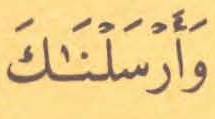 وَأَرْسَلْنَـٰكَ